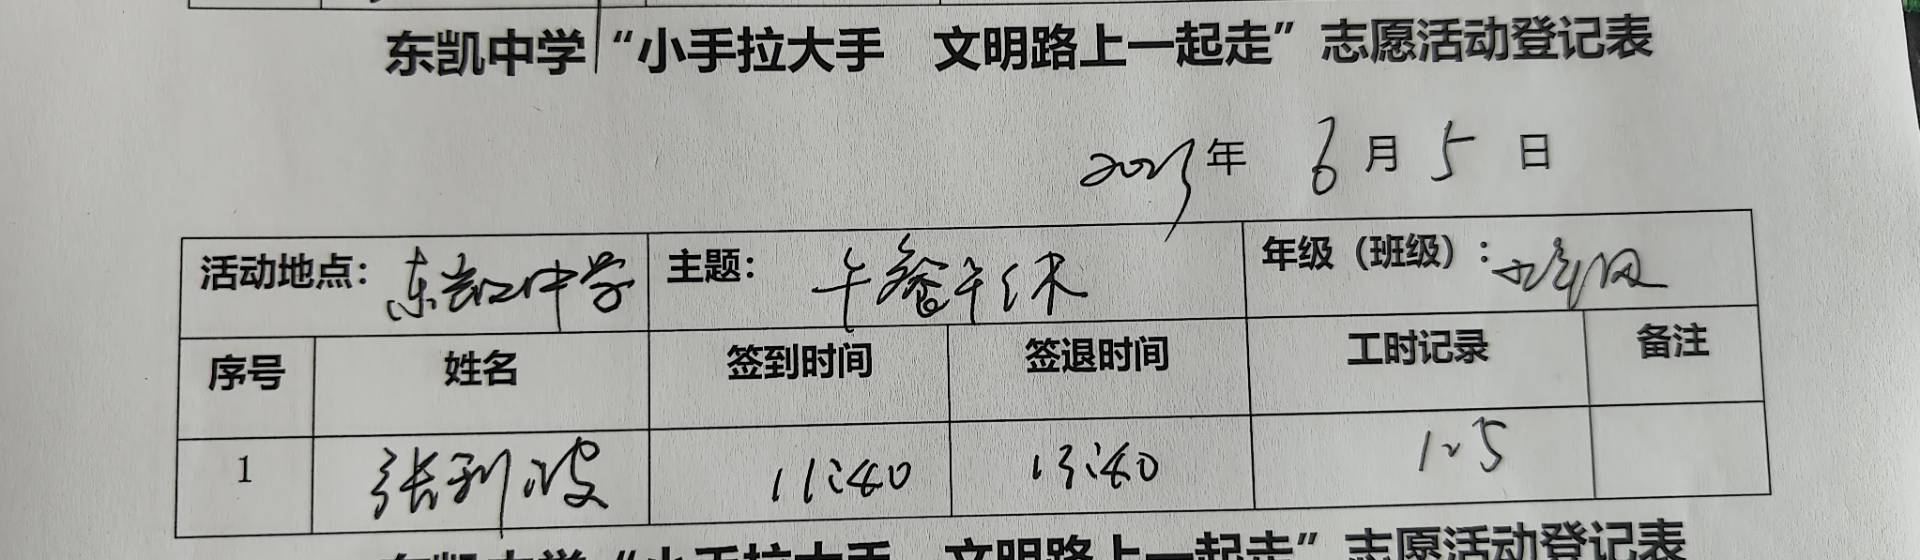 东凯中学“小手拉大手 文明路上一起走”志愿活动登记表
2023年 6月5日
活动地点：东凯中学 主题：午餐午休 年级（班级）：九年级
序号 姓名 签到时间 签退时间 工时记录 备注
1 张利波 11:40 13:40 125
东凯中学“小手拉大手 文明路上一起走”志愿活动登记表